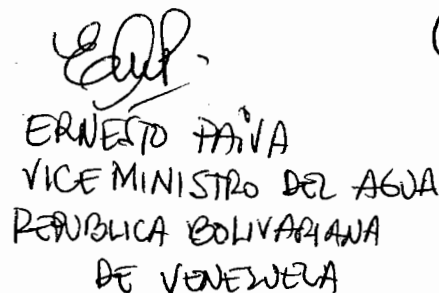 ERNESTO PAIVA
VICE MINISTRO DEL AGUA
REPUBLICA BOLIVARIANA
DE VENEZUELA